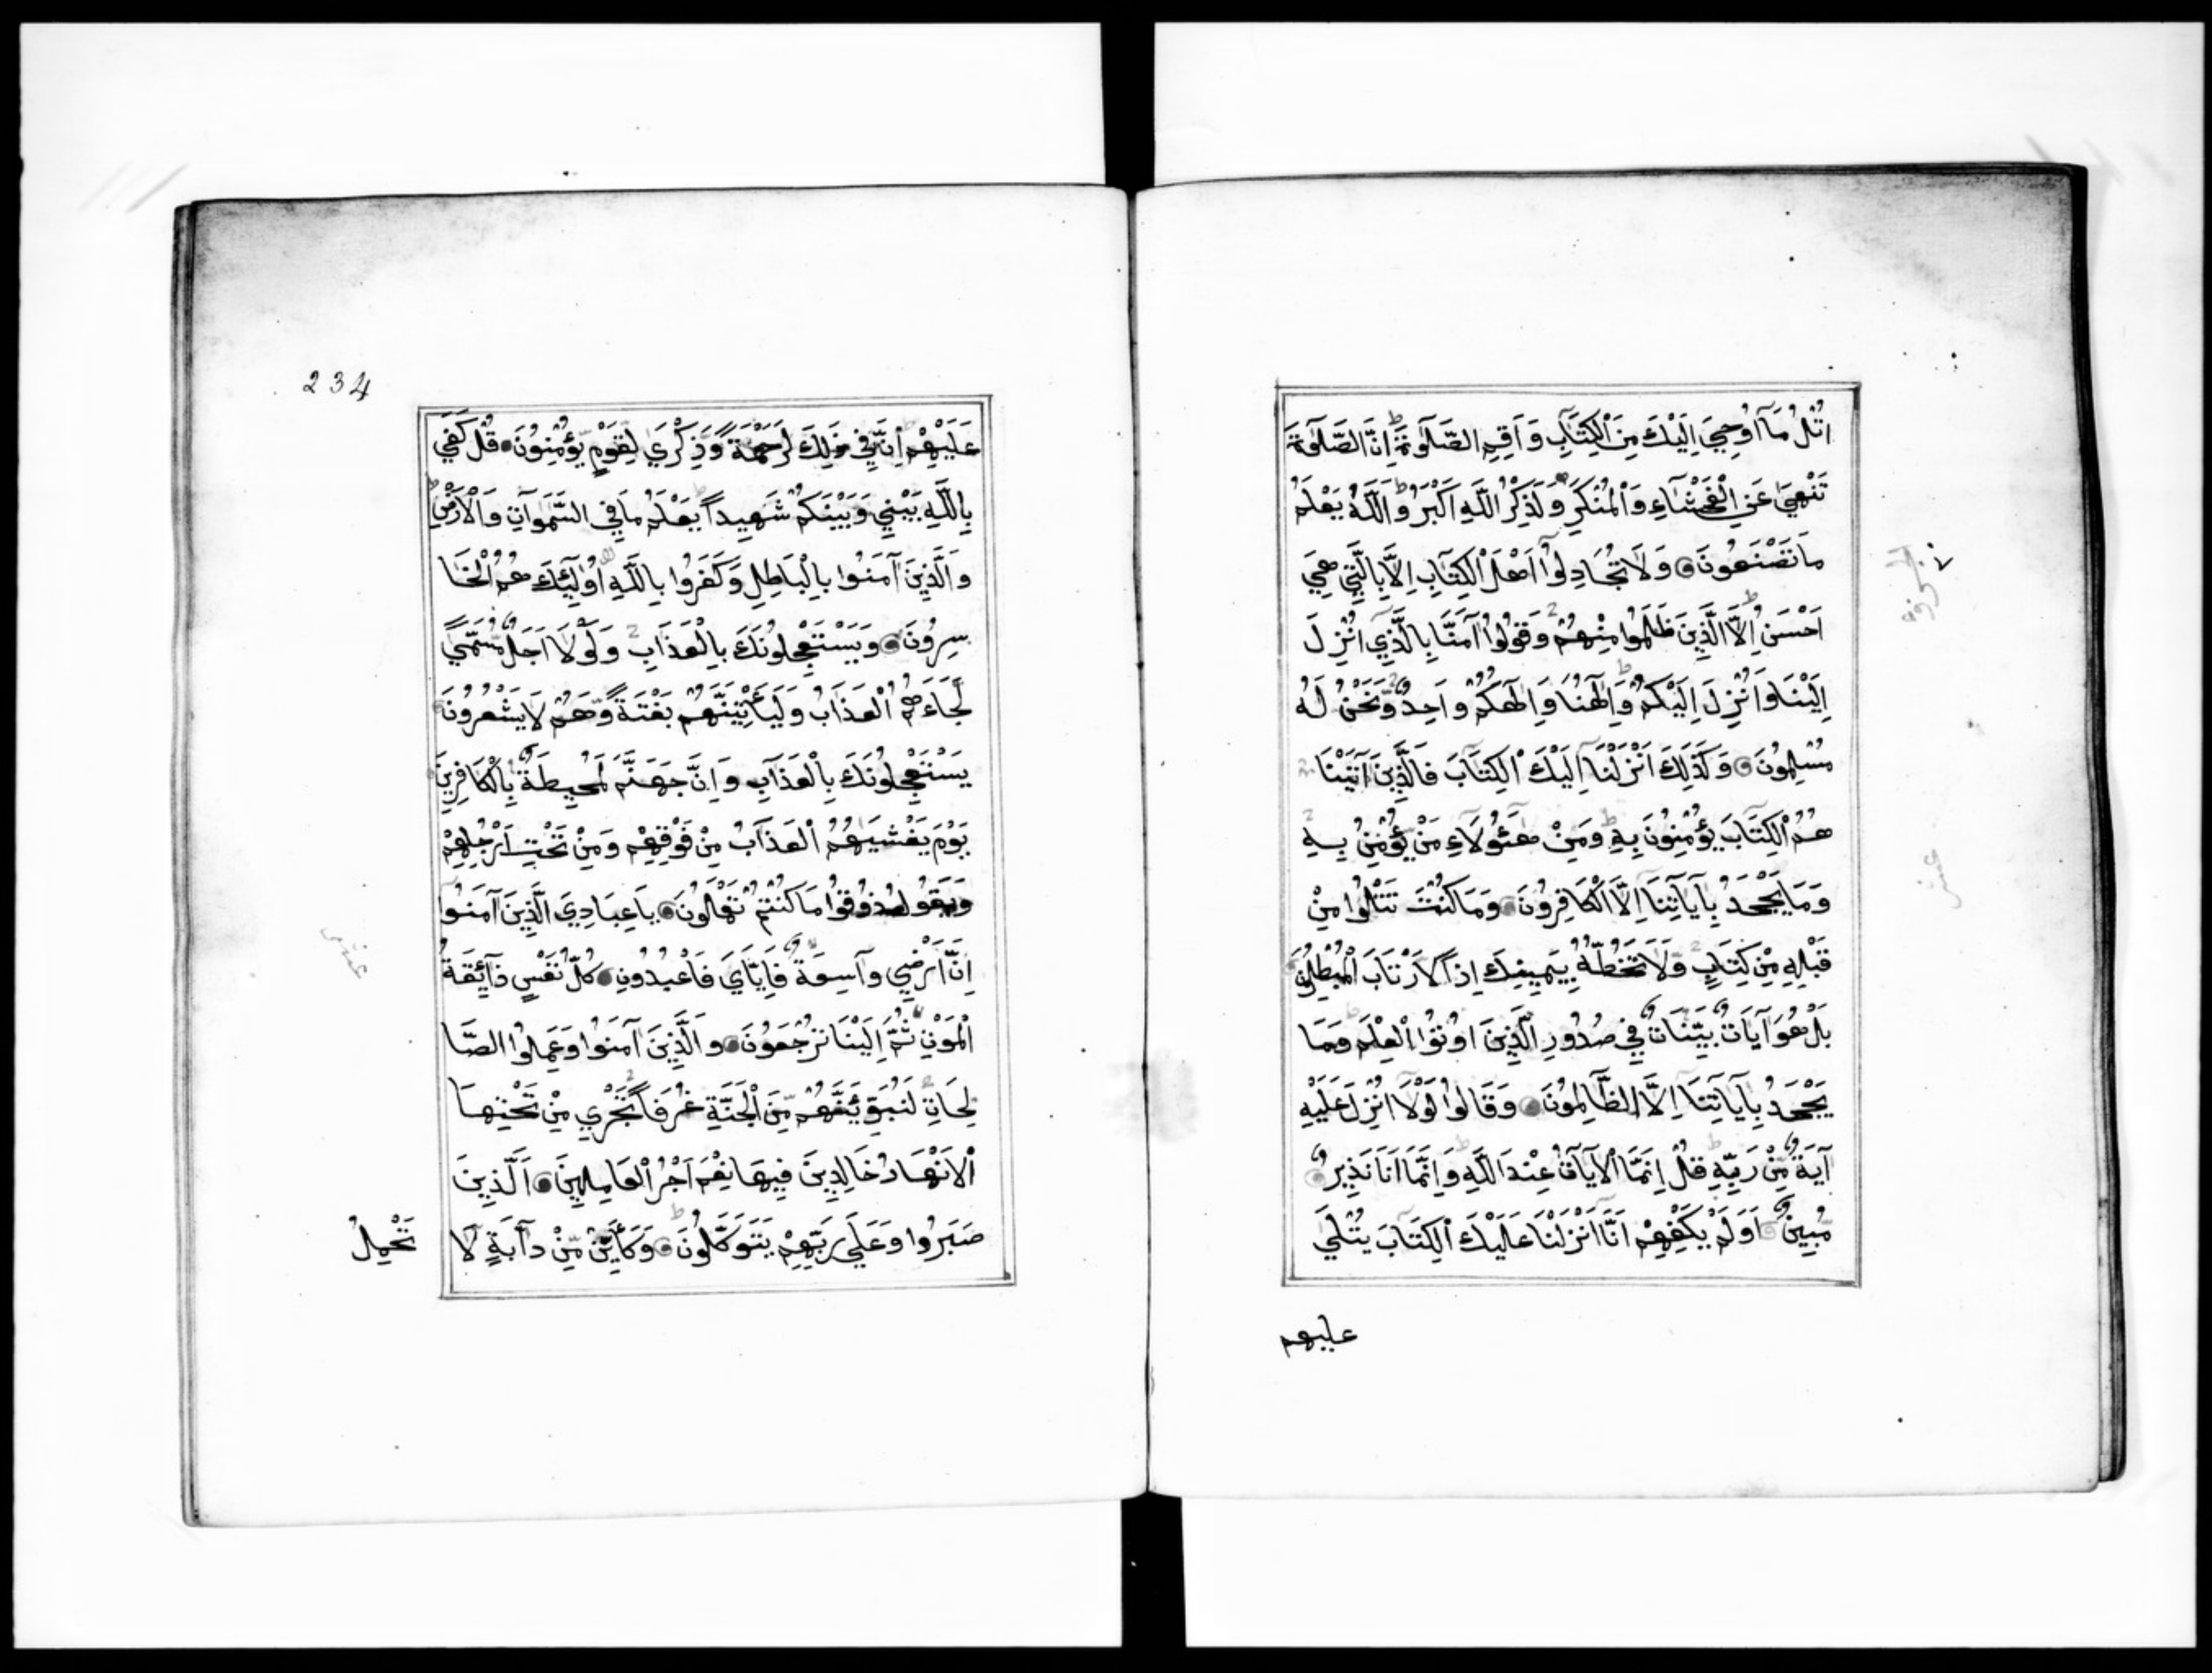 اُتْلُ مَآ اُوحِيَ اِلَيْكَ مِنَ الْكِتَابِ وَاَقِمِ الصَّلٰوةَ اِنَّ الصَّلٰوةَ
تَنْهٰي عَنِ الْفَحْشَآءِ وَالْمُنْكَرِ وَلَذِكْرُ اللَّهِ اَكْبَرُ وَاللَّهُ يَعْلَمُ
مَا تَصْنَعُونَ وَلَا تُجَادِلُوا اَهْلَ الْكِتَابِ اِلَّا بِالَّتِي هِيَ
اَحْسَنُ اِلَّا الَّذِينَ ظَلَمُوا مِنْهُمْ وَقُولُوا آمَنَّا بِالَّذِي اُنْزِلَ
اِلَيْنَا وَاُنْزِلَ اِلَيْكُمْ وَاِلٰهُنَا وَاِلٰهُكُمْ وَاحِدٌ وَنَحْنُ لَهُ
مُسْلِمُونَ وَكَذَلِكَ اَنْزَلْنَا اِلَيْكَ الْكِتَابَ فَالَّذِينَ آتَيْنَا
هُمُ الْكِتَابَ يُؤْمِنُونَ بِهِ وَمِنْ هٰؤُلَاءِ مَنْ يُؤْمِنُ بِهِ
وَمَا يَجْحَدُ بِآيَاتِنَا اِلَّا الْكَافِرُونَ وَمَا كُنْتَ تَتْلُوا مِنْ
قَبْلِهِ مِنْ كِتَابٍ وَلَا تَخُطُّهُ بِيَمِينِكَ اِذًا لَارْتَابَ الْمُبْطِلُونَ
بَلْ هُوَ آيَاتٌ بَيِّنَاتٌ فِي صُدُورِ الَّذِينَ اُوتُوا الْعِلْمَ وَمَا
يَجْحَدُ بِآيَاتِنَا اِلَّا الظَّالِمُونَ وَقَالُوا لَوْلَا اُنْزِلَ عَلَيْهِ
آيَةٌ مِّنْ رَبِّهِ قُلْ اِنَّمَا الْآيَاتُ عِنْدَ اللَّهِ وَاِنَّمَا اَنَا نَذِيرٌ
مُّبِينٌ اَوَلَمْ يَكْفِهِمْ اَنَّا اَنْزَلْنَا عَلَيْكَ الْكِتَابَ يُتْلَي
عليهم
234
عَلَيْهِمْ اِنَّ فِي ذَلِكَ لَرَحْمَةً وَّذِكْرَي لِقَوْمٍ يُّؤْمِنُونَ قُلْ كَفَي
بِاللَّهِ بَيْنِي وَبَيْنَكُمْ شَهِيداً يَعْلَمُ مَا فِي السَّمٰوَاتِ وَالْاَرْضِ
وَالَّذِينَ آمَنُوا بِالْبَاطِلِ وَكَفَرُوا بِاللَّهِ اُولٰٓئِكَ هُمُ الْخَا
سِرُونَ وَيَسْتَعْجِلُونَكَ بِالْعَذَابِ وَلَوْلَا اَجَلٌ مُّسَمًّي
لَّجَاءَهُمُ الْعَذَابُ وَلَيَأْتِيَنَّهُم بَغْتَةً وَّهُمْ لَا يَشْعُرُونَ
يَسْتَعْجِلُونَكَ بِالْعَذَابِ وَاِنَّ جَهَنَّمَ لَمُحِيطَةٌ بِالْكَافِرِينَ
يَوْمَ يَغْشَيٰهُمُ الْعَذَابُ مِنْ فَوْقِهِمْ وَمِنْ تَحْتِ اَرْجُلِهِمْ
وَيَقُولُ ذُوقُوا مَا كُنْتُمْ تَعْمَلُونَ يَا عِبَادِيَ الَّذِينَ آمَنُوا
اِنَّ اَرْضِي وَاسِعَةٌ فَاِيَّايَ فَاعْبُدُونِ كُلُّ نَفْسٍ ذَآئِقَةُ
الْمَوْتِ ثُمَّ اِلَيْنَا تُرْجَعُونَ وَالَّذِينَ آمَنُوا وَعَمِلُوا الصَّا
لِحَاتِ لَنُبَوِّئَنَّهُمْ مِّنَ الْجَنَّةِ غُرَفاً تَجْرِي مِنْ تَحْتِهَا
الْاَنْهَارُ خَالِدِينَ فِيهَا نِعْمَ اَجْرُ الْعَامِلِينَ اَلَّذِينَ
صَبَرُوا وَعَلَي رَبِّهِمْ يَتَوَكَّلُونَ وَكَاَيِّنْ مِّنْ دَآبَةٍ لَا
تَحْمِلُ